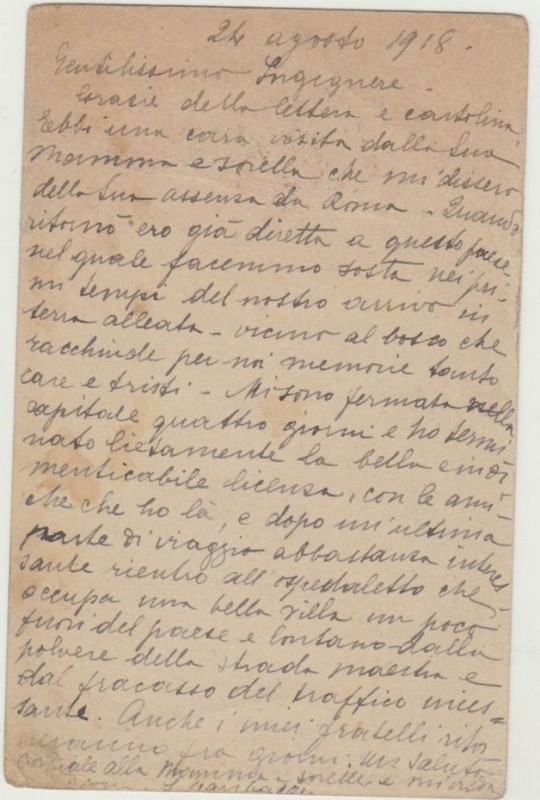 24 agosto 1918.
Gentilissimo Ingegnere.
Grazie della lettera e cartolina,
Ebbi una cara visita dalla Sua
Mamma e sorella che mi dissero
della Sua assenza da Roma - Quando
ritornò ero già diretta a questo paese
nel quale facemmo sosta nei pri-
mi tempi del nostro arrivo in
terra alleata - vicino al bosco che
racchiude per noi memorie tanto
care e tristi - Mi sono fermata nella
capitale quattro giorni e ho termi
nato lietamente la bella e indi-
menticabile licenza, con le ami-
che che ho là, e dopo un'ultima
parte di viaggio abbastanza interes
sante rientro all'ospedaletto che
occupa una bella villa un poco
fuori del paese e lontano dalla
polvere della strada maestra e
dal fracasso del traffico inces=
sante. Anche i miei fratelli ritor
neranno fra giorni. Un saluto
cordiale alla Mamma e sorelle e mi creda